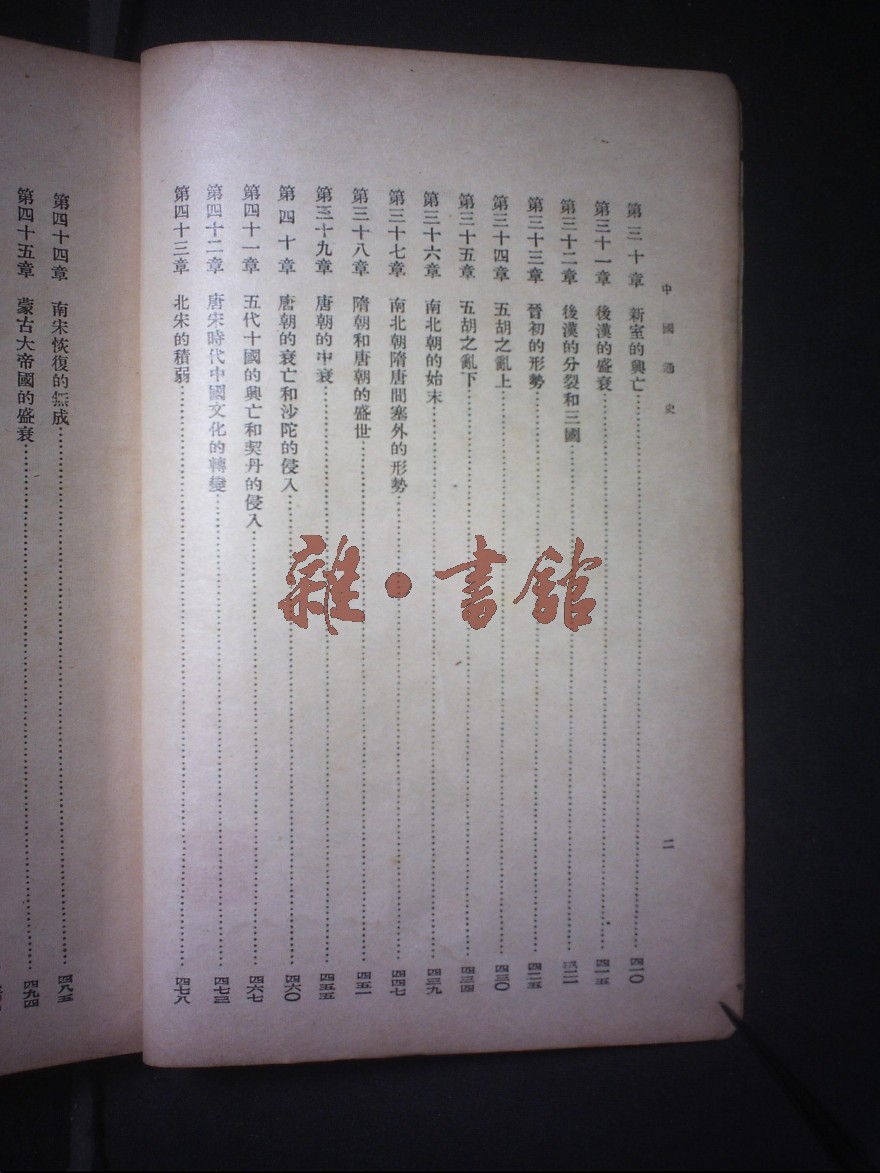 中國通史
二
第三十章 新室的興亡……四一〇
第三十一章 後漢的盛衰……四一五
第三十二章 後漢的分裂和三國……四二一
第三十三章 晉初的形勢……四二五
第三十四章 五胡之亂上……四三〇
第三十五章 五胡之亂下……四三四
第三十六章 南北朝的始末……四三九
第三十七章 南北朝隋唐間塞外的形勢……四四七
第三十八章 隋朝和唐朝的盛世……四五一
第三十九章 唐朝的中衰……四五五
第四十章 唐朝的衰亡和沙陀的侵入……四六〇
第四十一章 五代十國的興亡和契丹的侵入……四六七
第四十二章 唐宋時代中國文化的轉變……四七三
第四十三章 北宋的積弱……四七八
第四十四章 南宋恢復的無成……四八五
第四十五章 蒙古大帝國的盛衰……四九四
雜·書館